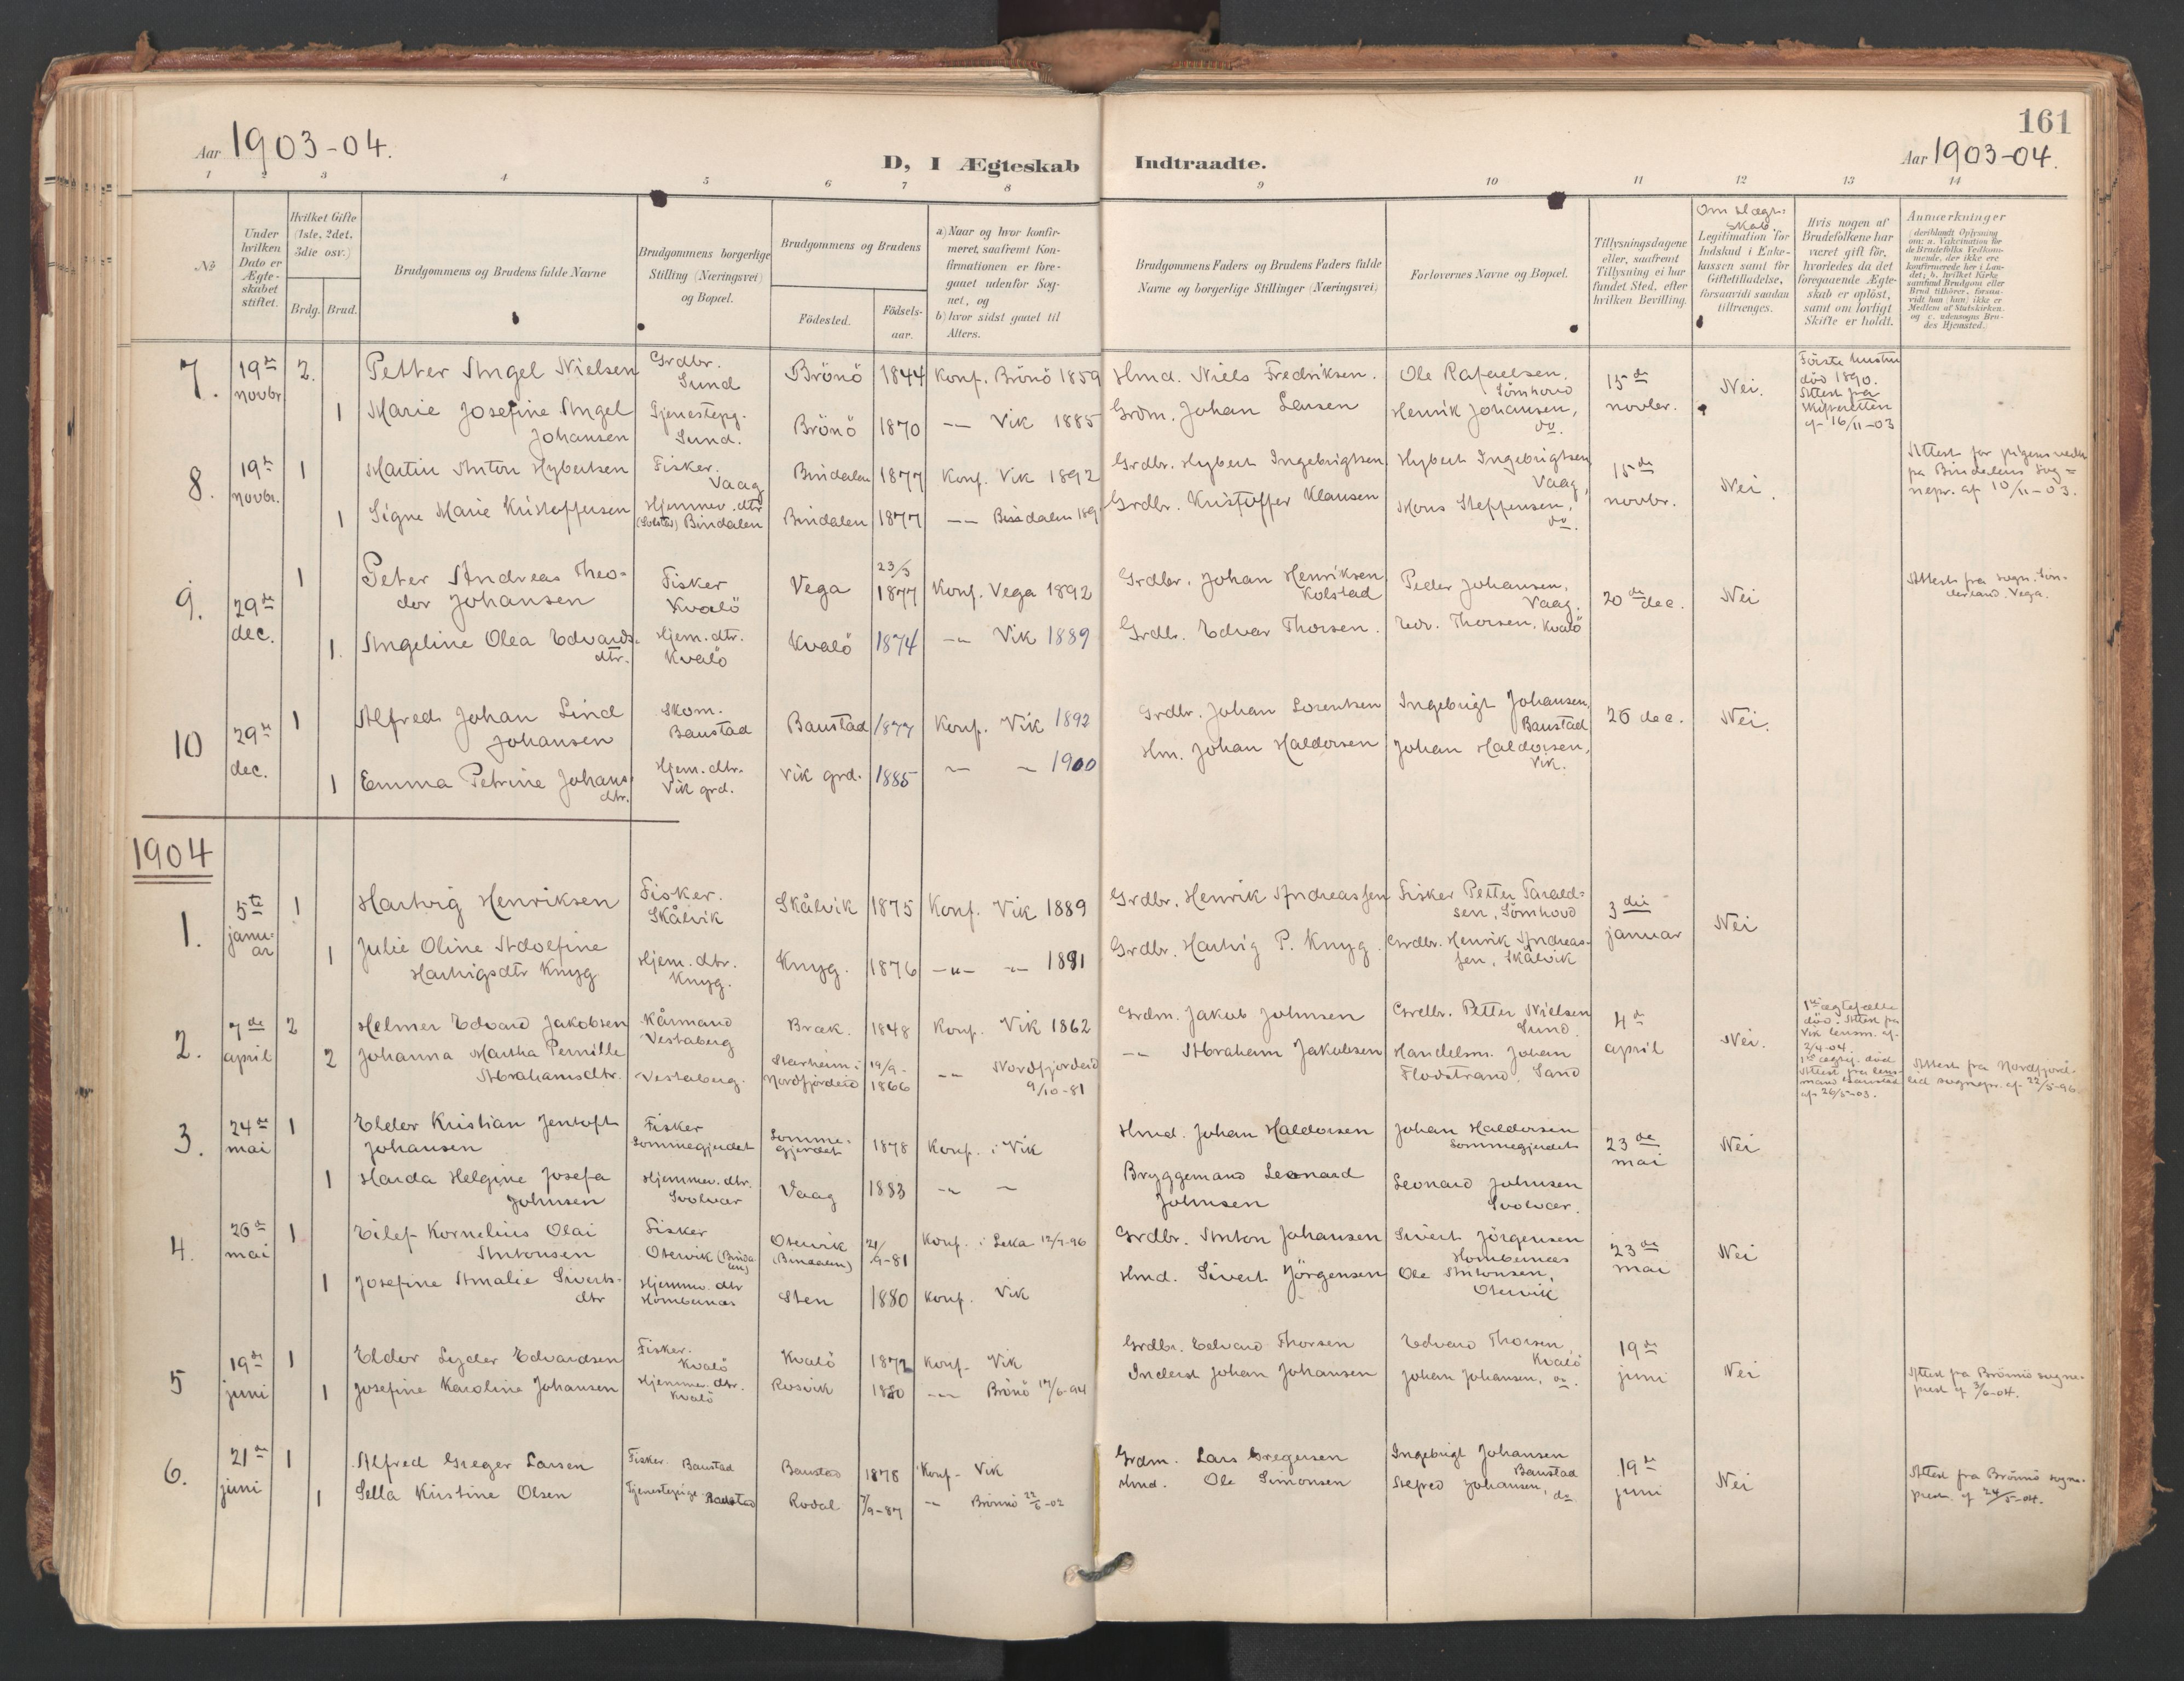 161
Aar 1903-04.
D, I Ægteskab Indtraadte.
Aar 1903-04.
1 2 3 4 5 6 7 8 9 10 11 12 13 14
No
Under hvilken Dato er Ægteskabet stiftet.
Hvilket Gifte (1ste, 2det, 3die osv.)
Brdg. Brud.
Brudgommens og Brudens fulde Navne
Brudgommens borgerlige Stilling (Næringsvei) og Bopæl.
Brudgommens og Brudens
Fødested.
Fødsels-aar.
a) Naar og hvor konfirmeret, saafremt Konfirmationen er foregaaet udenfor Sognet, og
b) hvor sidst gaaet til Alters.
Brudgommens Faders og Brudens Faders fulde Navne og borgerlige Stillinger (Næringsvei)
Forlovernes Navne og Bopæl.
Tillysningsdagene eller, saafremt Tillysning ei har fundet Sted, efter hvilken Bevilling.
Om slægtskab.
Legitimation for Indskud i Enkekassen samt for Giftetilladelse, forsaavidt saadan tiltrænges.
Hvis nogen af Brudefolkene har været gift før, hvorledes da det foregaaende Ægteskab er opløst, samt om lovligt Skifte er holdt.
Anmærkninger (deriblandt Oplysning om: a. Vakcination for de Brudefolks Vedkommende, der ikke ere konfirmerede her i Landet; b. hvilket Kirkesamfund Brudgom eller Brud tilhører, forsaavidt han (hun) ikke er Medlem af Statskirken, og c. udensogns Brudes Hjemsted.)
7. 19de novbr 2. Petter Angel Nielsen Grdbr. Sund Brönö 1844 Konf. Brönö 1859 Hmd. Niels Fredriksen. Ole Rafaelsen, Sömhovd 15de novbr. Nei. Förste hustru död 1890. Attest fra skifteretten af 16/11-03
1 Marie Josefine Angel Johansen Tjenestepg. Sund. Brönö 1870 -"- Vik 1885 Grdm. Johan Larsen Henrik Johansen, do.
8. 19de novbr. 1 Martin Anton Hybertsen Fisker. Vaag Bindalen 1877 Konf. Vik 1892 Grdbr. Hybert Ingebrigtsen Hybert Ingebrigtsen, Vaag, 15de novbr. Nei. Attest for pigens vedk. fra Bindalens sognepr. af 10/11-03.
1 Signe Marie Kristoffersen Hjemmev. dtr (Solstad) Bindalen Bindalen 1877 -"- Bindalen 189 Grdbr. Kristoffer Klausen Mons Steffensen, do.
9. 29de dec. 1 Peter Andreas Theodor Johansen Fisker Kvalö Vega 23/3 1877 Konf. Vega 1892 Grdbr. Johan Henriksen Kolstad Peder Johansen, Vaag. 20de dec. Nei Attest fra sogn. Sönderland. Vega.
1. Angeline Olea Edvardsdtr. Hjem. dtr. Kvalö Kvalö 1874 -"- Vik 1889 Grdbr. Edvar Thorsen. Edv. Thorsen, Kvalö
10 29de dec. 1 Alfred Johan Lind Johansen Skom. Baustad Baustad 1877 Konf. Vik 1892 Grdbr. Johan Lorentsen Ingebrigt Johansen, Baustad 26 dec. Nei.
1 Emma Petrine Johansdtr. Hjem. dtr. Vik grd. Vik grd. 1885 " " 1900 Hm. Johan Haldorsen Johan Haldorsen, Vik.
1904
1. 5te januar 1 Hartvig Henriksen Fisker. Skålvik Skålvik 1875 Konf. Vik 1889 Grdbr. Henrik Andreassen Fisker Petter Taraldsen, Sömhovd 3die januar Nei
1 Julie Oline Adolfine Hartvigsdtr Knyg Hjem. dtr. Knyg. Knyg. 1876 -"- -"- 1891 Grdbr. Hartvig P. Knyg. Grdbr. Henrik Andreassen, Skålvik
2. 7de april 2 Helmer Edvard Jakobsen Kårmand Vestaberg Bræk. 1848 Konf. Vik 1862 Grdm. Jakob Johnsen Grdbr. Petter Nielsen Sund. 4de april Nei. 1ste ægtefælle död. Attest fra Vik lensm. af 2/4-04
2 Johanna Martha Pernille Abrahamsdtr. Vestaberg. Starheim i Nordfjordeid 19/9-1866 -"- Nordfjordeid 9/10-81 -"- Abraham Jakobsen Handelsm. Johan Flodstrand, Sand 1ste ægtef. död Attest fra lensmand af 26/5-03. Attest fra Nordfjordeid sognepr. af 22/5-96
3. 24de mai 1 Eldor Kristian Jentoft Johansen Fisker Sommegjerdet Sommegjerdet 1878 Konf. i Vik Hmd. Johan Haldorsen Johan Haldorsen Sommegjerdet 23de mai Nei
1 Harda Helgine Josefa Johnsen Hjemmev. dtr. Svolvær Vaag 1883 -"- " Bryggemand Leonard Johnsen Leonard Johnsen Svolvær.
4. 26de mai 1 Eilef Kornelius Olai Antonsen Fisker Otervik (Bindalen) Otervik (Bindalen) 21/9-81 Konf. i Leka 12/7-96 Grdbr. Anton Johansen Sivert Jörgensen Hombornæs 23de mai Nei
1 Josefine Amalie Sivertsdtr Hjemmv. dtr Hombornæs Sten 1880 Konf. Vik Hmd. Sivert Jörgensen Ole Antonsen, Otervik
5 19de juni 1 Eldor Lyder Edvardsen Fisker. Kvalö Kvalö 1872 Konf. Vik Grdbr. Edvard Thorsen Edvard Thorsen, Kvalö 19de juni Nei Attest fra Brönnö sogneprest af 3/6-04.
1 Josefine Karoline Johansen Hjemmv. dtr. Kvalö Rosvik 1880 -"- Brönö 17/6-94 Inderst Johan Johansen Johan Johansen, do.
6. 21de juni 1 Alfred Greger Larsen Fisker. Baustad Baustad 1878 Konf. Vik Grdm. Lars Gregersen Ingebrigt Johansen Baustad 19de juni Nei Attest fra Brönnö sogneprest. af 24/5-04.
1 Sella Kristine Olsen Tjenestepige Baustad Rodal 7/9-87 -"- Brönnö 22/6-02 Hmd. Ole Simonsen Alfred Johansen, do